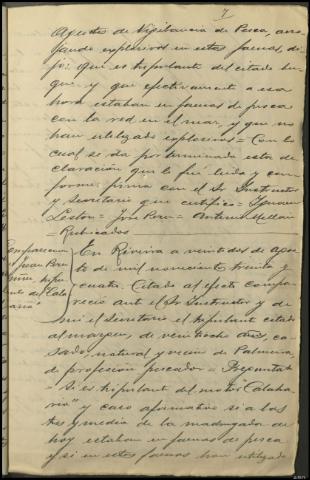 7
Agentes de Vigilancia de Pesca, arro-
jando explosivos en estas faenas, di-
jo: Que es tripulante del citado bu-
que y que efectivamente a esa
hora estaban en faenas de pesca
con la red en el mar, y que no
han utilizado explosivos = Con lo
cual se da por terminada esta de-
claración que le fue leida y con-
forme firma con el Sr Instructor
y Secretario que certifico =
José = Antonio
Rubricados
Comparecencia
de Juan
tripu-
En Riveira a veintidos de agos-
to de mil novecientos treinta y
cuatro. Citado al efecto compa-
recio ante el Sr Instructor y de
mi el Secretario el tripulante citado
al margen, de veintiocho años, ca-
sado, natural y vecino de Palmeira,
de profesión pescador = Preguntado
= Si es tripulante del motor "Calaba-
ria" y caso afirmativo si a las
tres y media de la madrugada de
hoy estaban en faenas de pesca
y si en estas faenas han utilizado